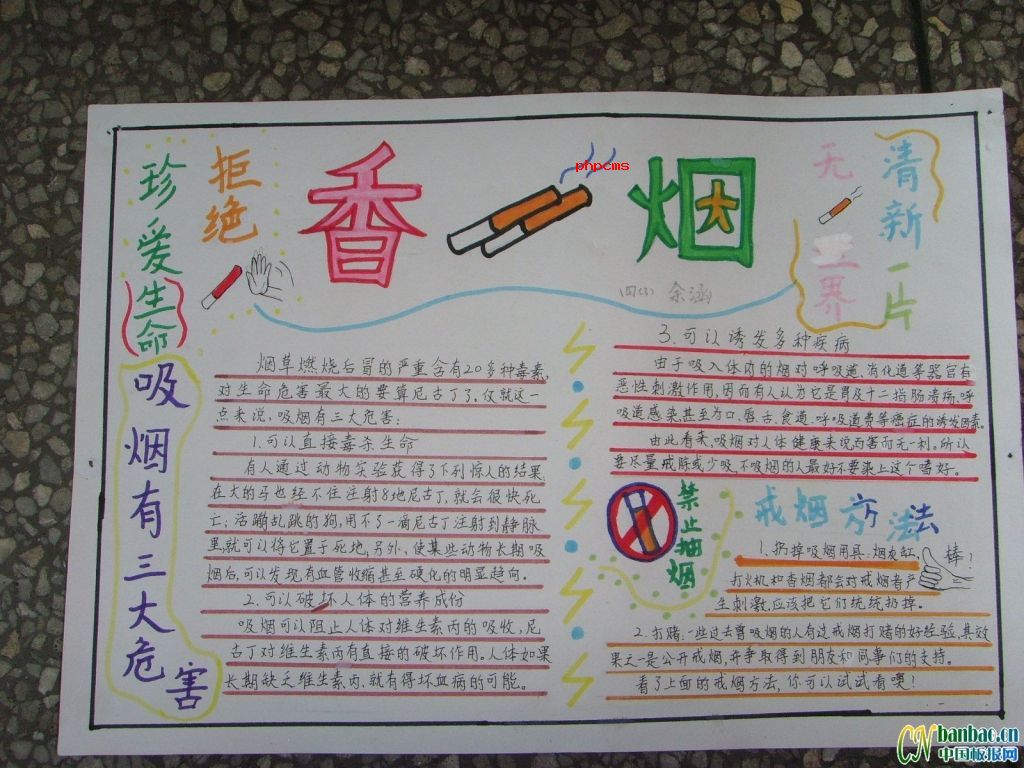 珍爱生命
拒绝
香烟
phpcms
无
清新一片
界
四(3) 余涵
吸烟有三大危害
烟草燃烧后冒的严重含有20多种毒素,
对生命危害最大的要算尼古丁了。仅就这一
点来说,吸烟有三大危害:
1.可以直接毒杀生命
有人通过动物实验获得了下列惊人的结果,
在大的马也经不住注射8地尼古丁,就会很快死
亡;活蹦乱跳的狗,用不了一滴尼古丁注射到静脉
里,就可以将它置于死地,另外、使某些动物长期吸
烟后,可以发现有血管收缩甚至硬化的明显趋向。
2.可以破坏人体的营养成份
吸烟可以阻止人体对维生素丙的吸收,尼
古丁对维生素丙有直接的破坏作用。人体如果
长期缺乏维生素丙、就有得坏血病的可能。
3.可以诱发多种疾病
由于吸入体内的烟对呼吸道、消化道等器官有
恶性刺激作用,因而有人认为它是胃及十二指肠溃疡、呼
吸道感染甚至为口、唇、舌、食道、呼吸道等癌症的诱发因素。
由此看来,吸烟对人体健康来说百害而无一利。所以
要尽量戒除或少吸,不吸烟的人最好不要染上这个嗜好。
禁止抽烟
戒烟方法
1.扔掉吸烟用具、烟灰缸、
棒!
打火机和香烟都会对戒烟者产
生刺激,应该把它们统统扔掉。
2.打赌.一些过去曾吸烟的人有过戒烟打赌的好经验,其效
果之一是公开戒烟,并争取得到朋友和同事们的支持。
看了上面的戒烟方法,你可以试试看噢!
CN banbao.cn
中国板报网